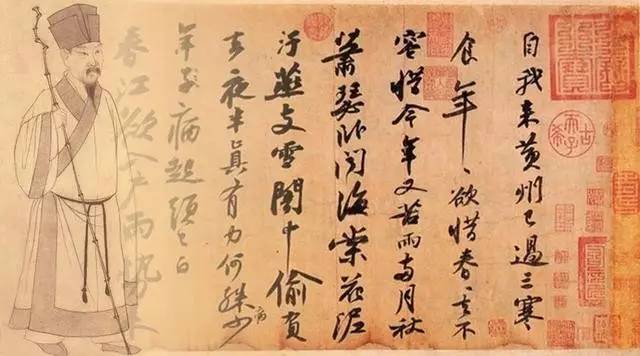 自我來黃州已過三寒
食年〻欲惜春〻去不
容惜今年又苦雨兩月秋
蕭瑟卧聞海棠花泥
汙燕支雪闇中偷負
去夜半真有力何殊少
病
年子病起頭已白
春江欲入戶雨勢來
古希天子